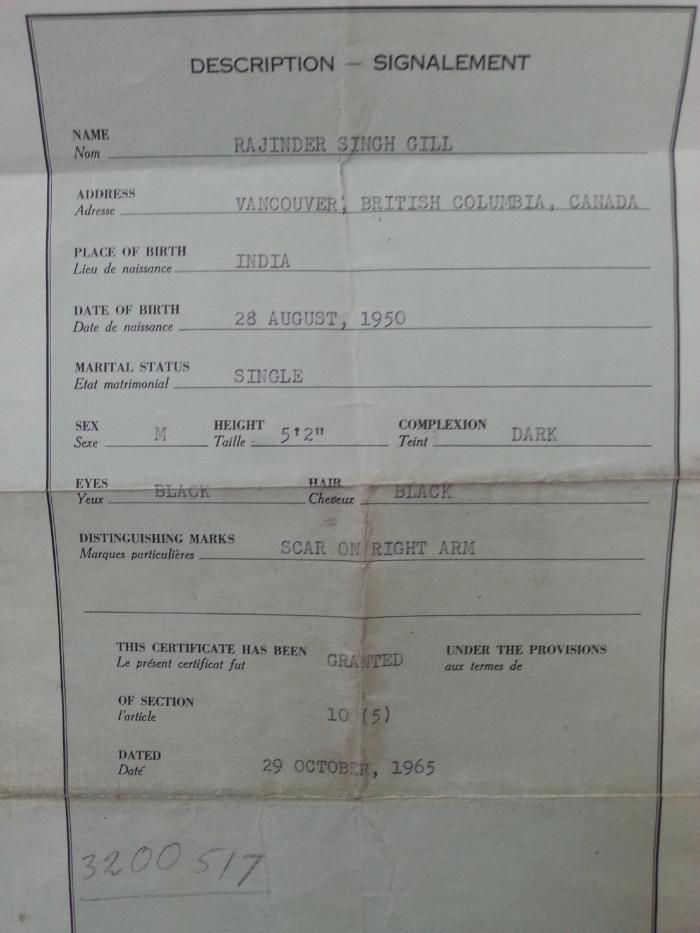 DESCRIPTION — SIGNALEMENT
NAME
Nom RAJINDER SINGH GILL
ADDRESS
Adresse VANCOUVER, BRITISH COLUMBIA, CANADA
PLACE OF BIRTH
Lieu de naissance INDIA
DATE OF BIRTH
Date de naissance 28 AUGUST, 1950
MARITAL STATUS
Etat matrimonial SINGLE
SEX HEIGHT COMPLEXION
Sexe M Taille 5'2" Teint DARK
EYES HAIR
Yeux BLACK Cheveux BLACK
DISTINGUISHING MARKS
Marques particulières SCAR ON RIGHT ARM
THIS CERTIFICATE HAS BEEN UNDER THE PROVISIONS
Le présent certificat fut GRANTED aux termes de
OF SECTION
l'article 10 (5)
DATED
Daté 29 OCTOBER, 1965
3200517